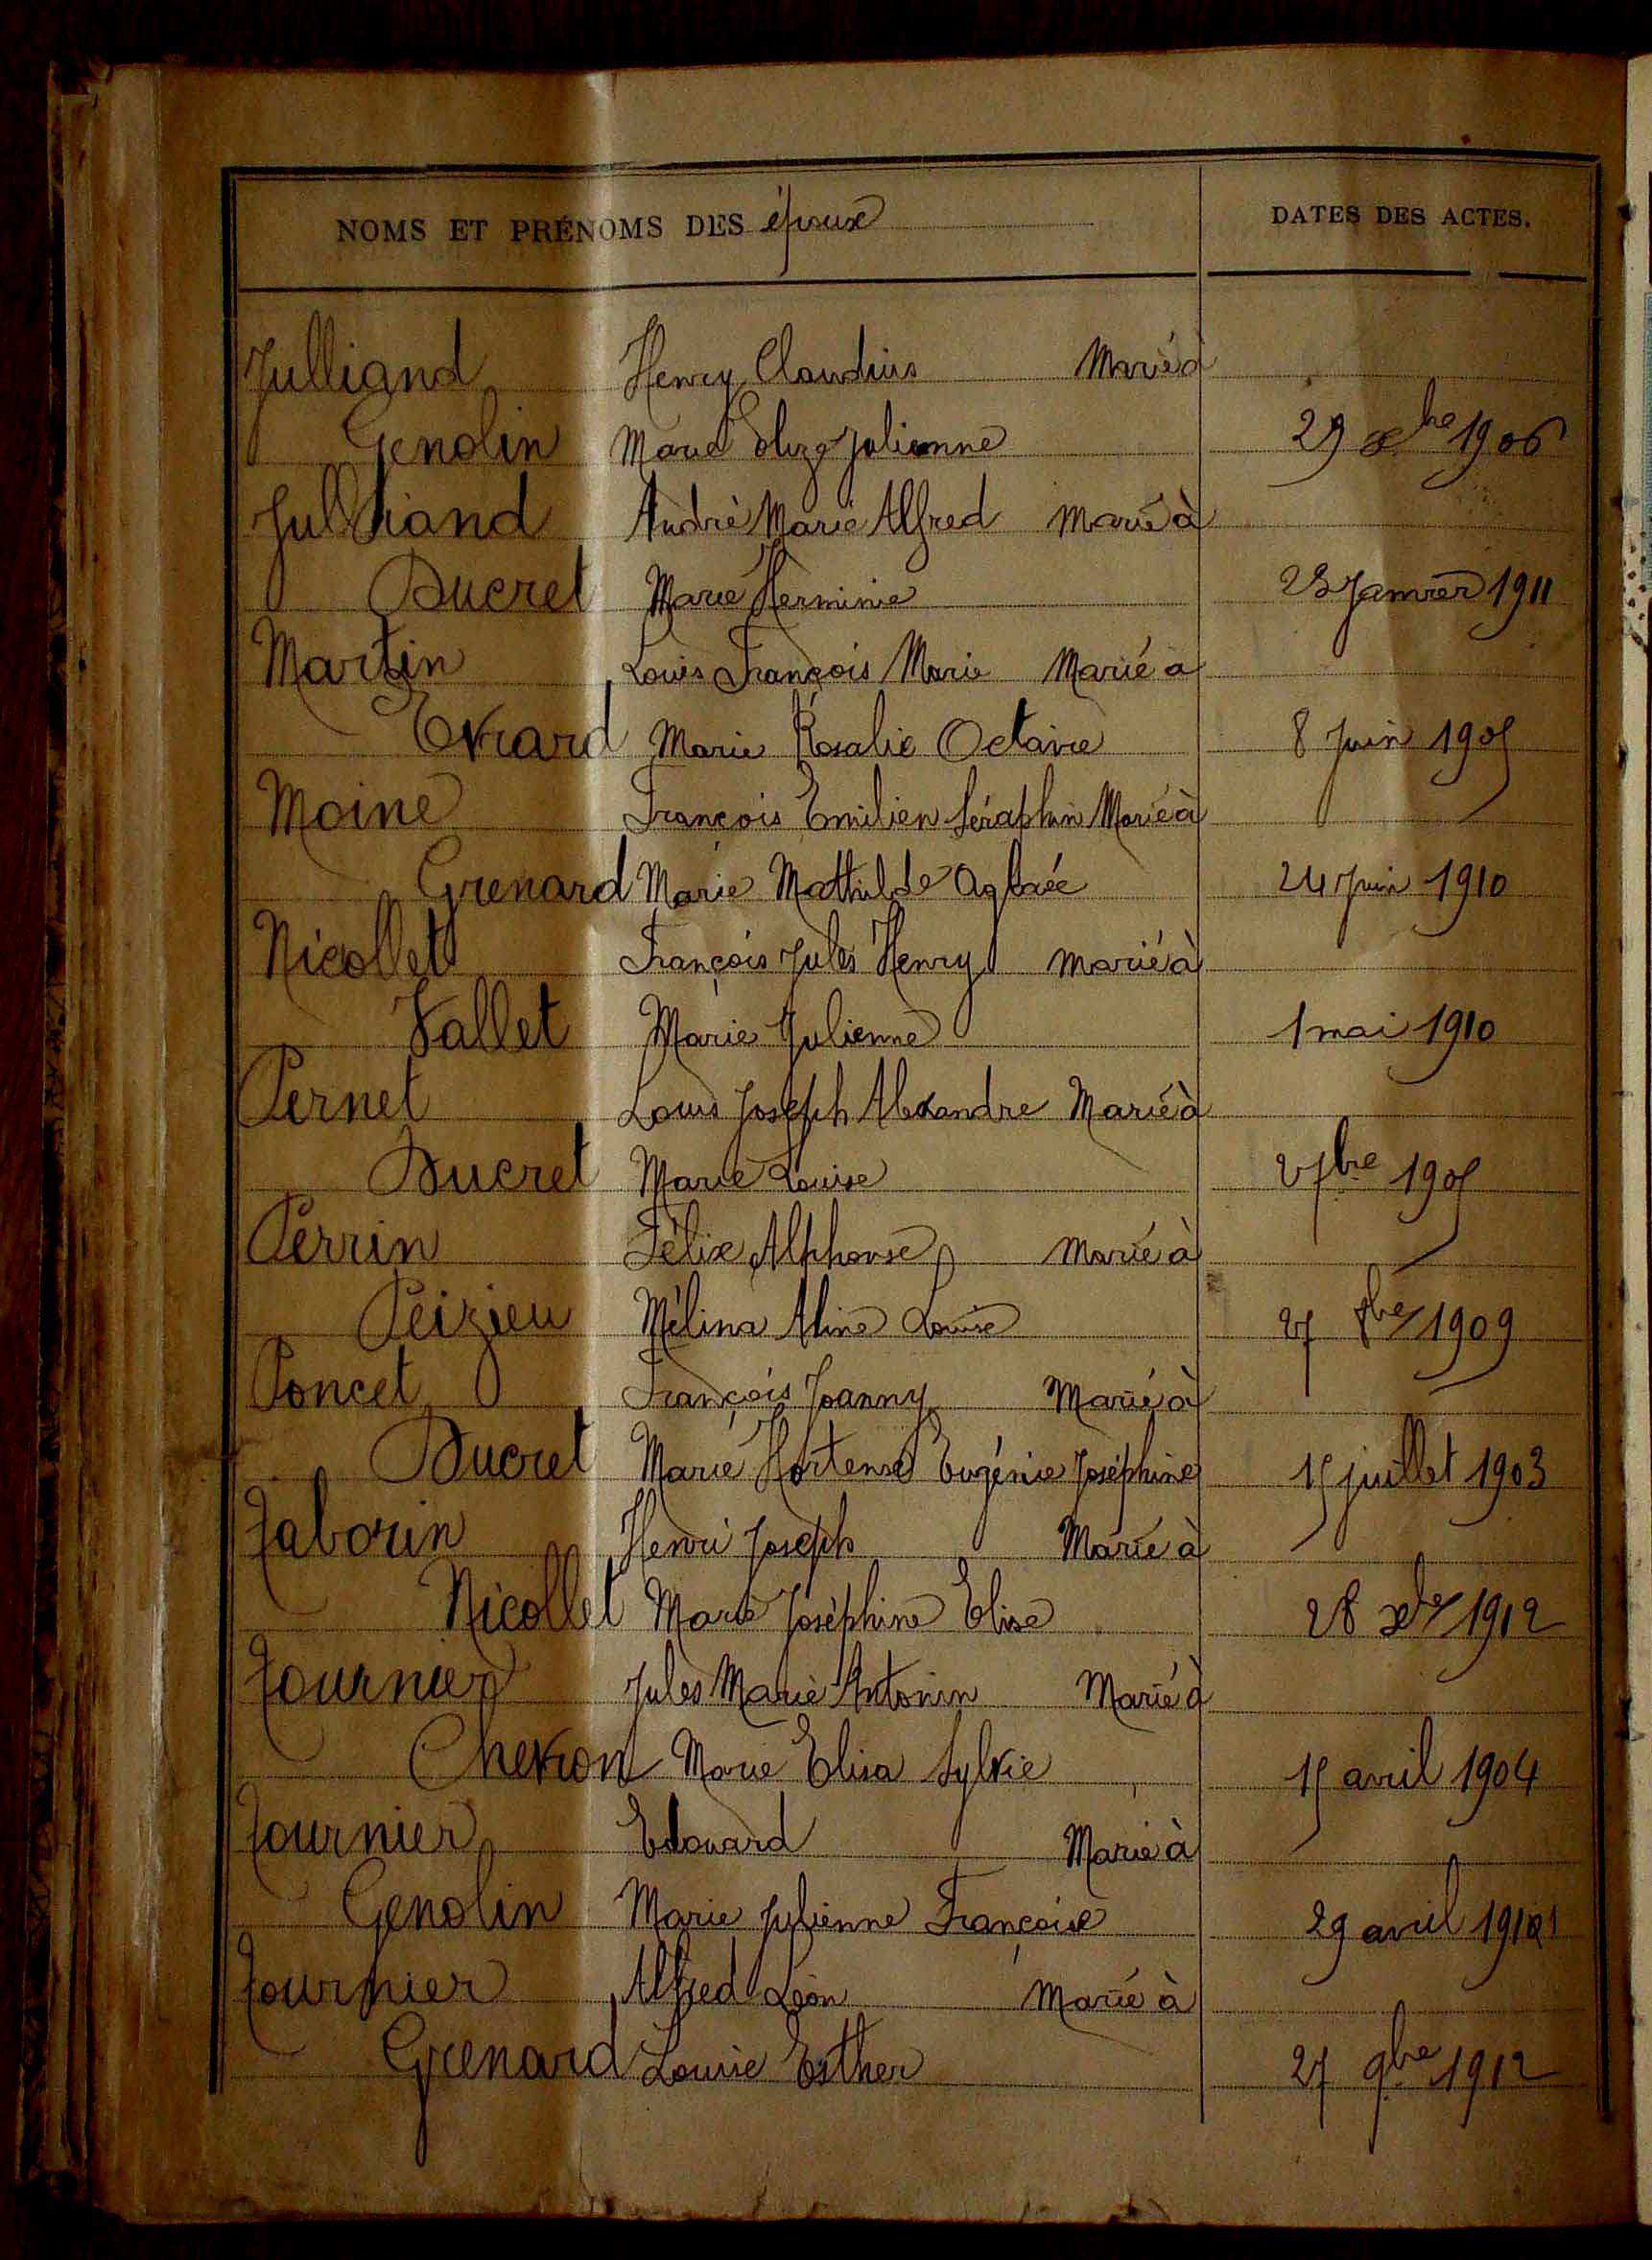 NOMS ET PRÉNOMS DES époux DATES DES ACTES.
Julliand Henry Claudius Marié à
Genolin Marie Julienne 29 xbre 1906
Julliand André Marie Alfred marié à
Ducret Marie Herminie 23 Janvier 1911
Martin Louis François Marie Marié à
Evrard Marie Rosalie Octavie 8 Juin 1905
Moine François Emilien Séraphin Marié à
Grenard Marie Mathilde Aglaée 24 Juin 1910
Nicollet François Jules Henry marié à
Vallet Marie Julienne 1 mai 1910
Pernet Louis Joseph Alexandre Marié à
Ducret Marie Louise 1905
Perrin Félix Alphonse marié à
Peizieu Mélina Aline Louise 27 1909
Poncet François Joanny Marié à
Ducret Marie Hortense Eugénie Joséphine 15 juillet 1903
Taborin Henri Joseph Marié à
Nicollet Marie Joséphine Elise 28 xbre 1912
Tournier Jules Marie Antonin Marié à
Chevron Marie Elisa Sylvie 15 avril 1904
Tournier Edouard Marié à
Genolin Marie Julienne Françoise 29 avril
Tournier Alfred Léon Marié à
Grenard Louise Esther 27 9bre 1912